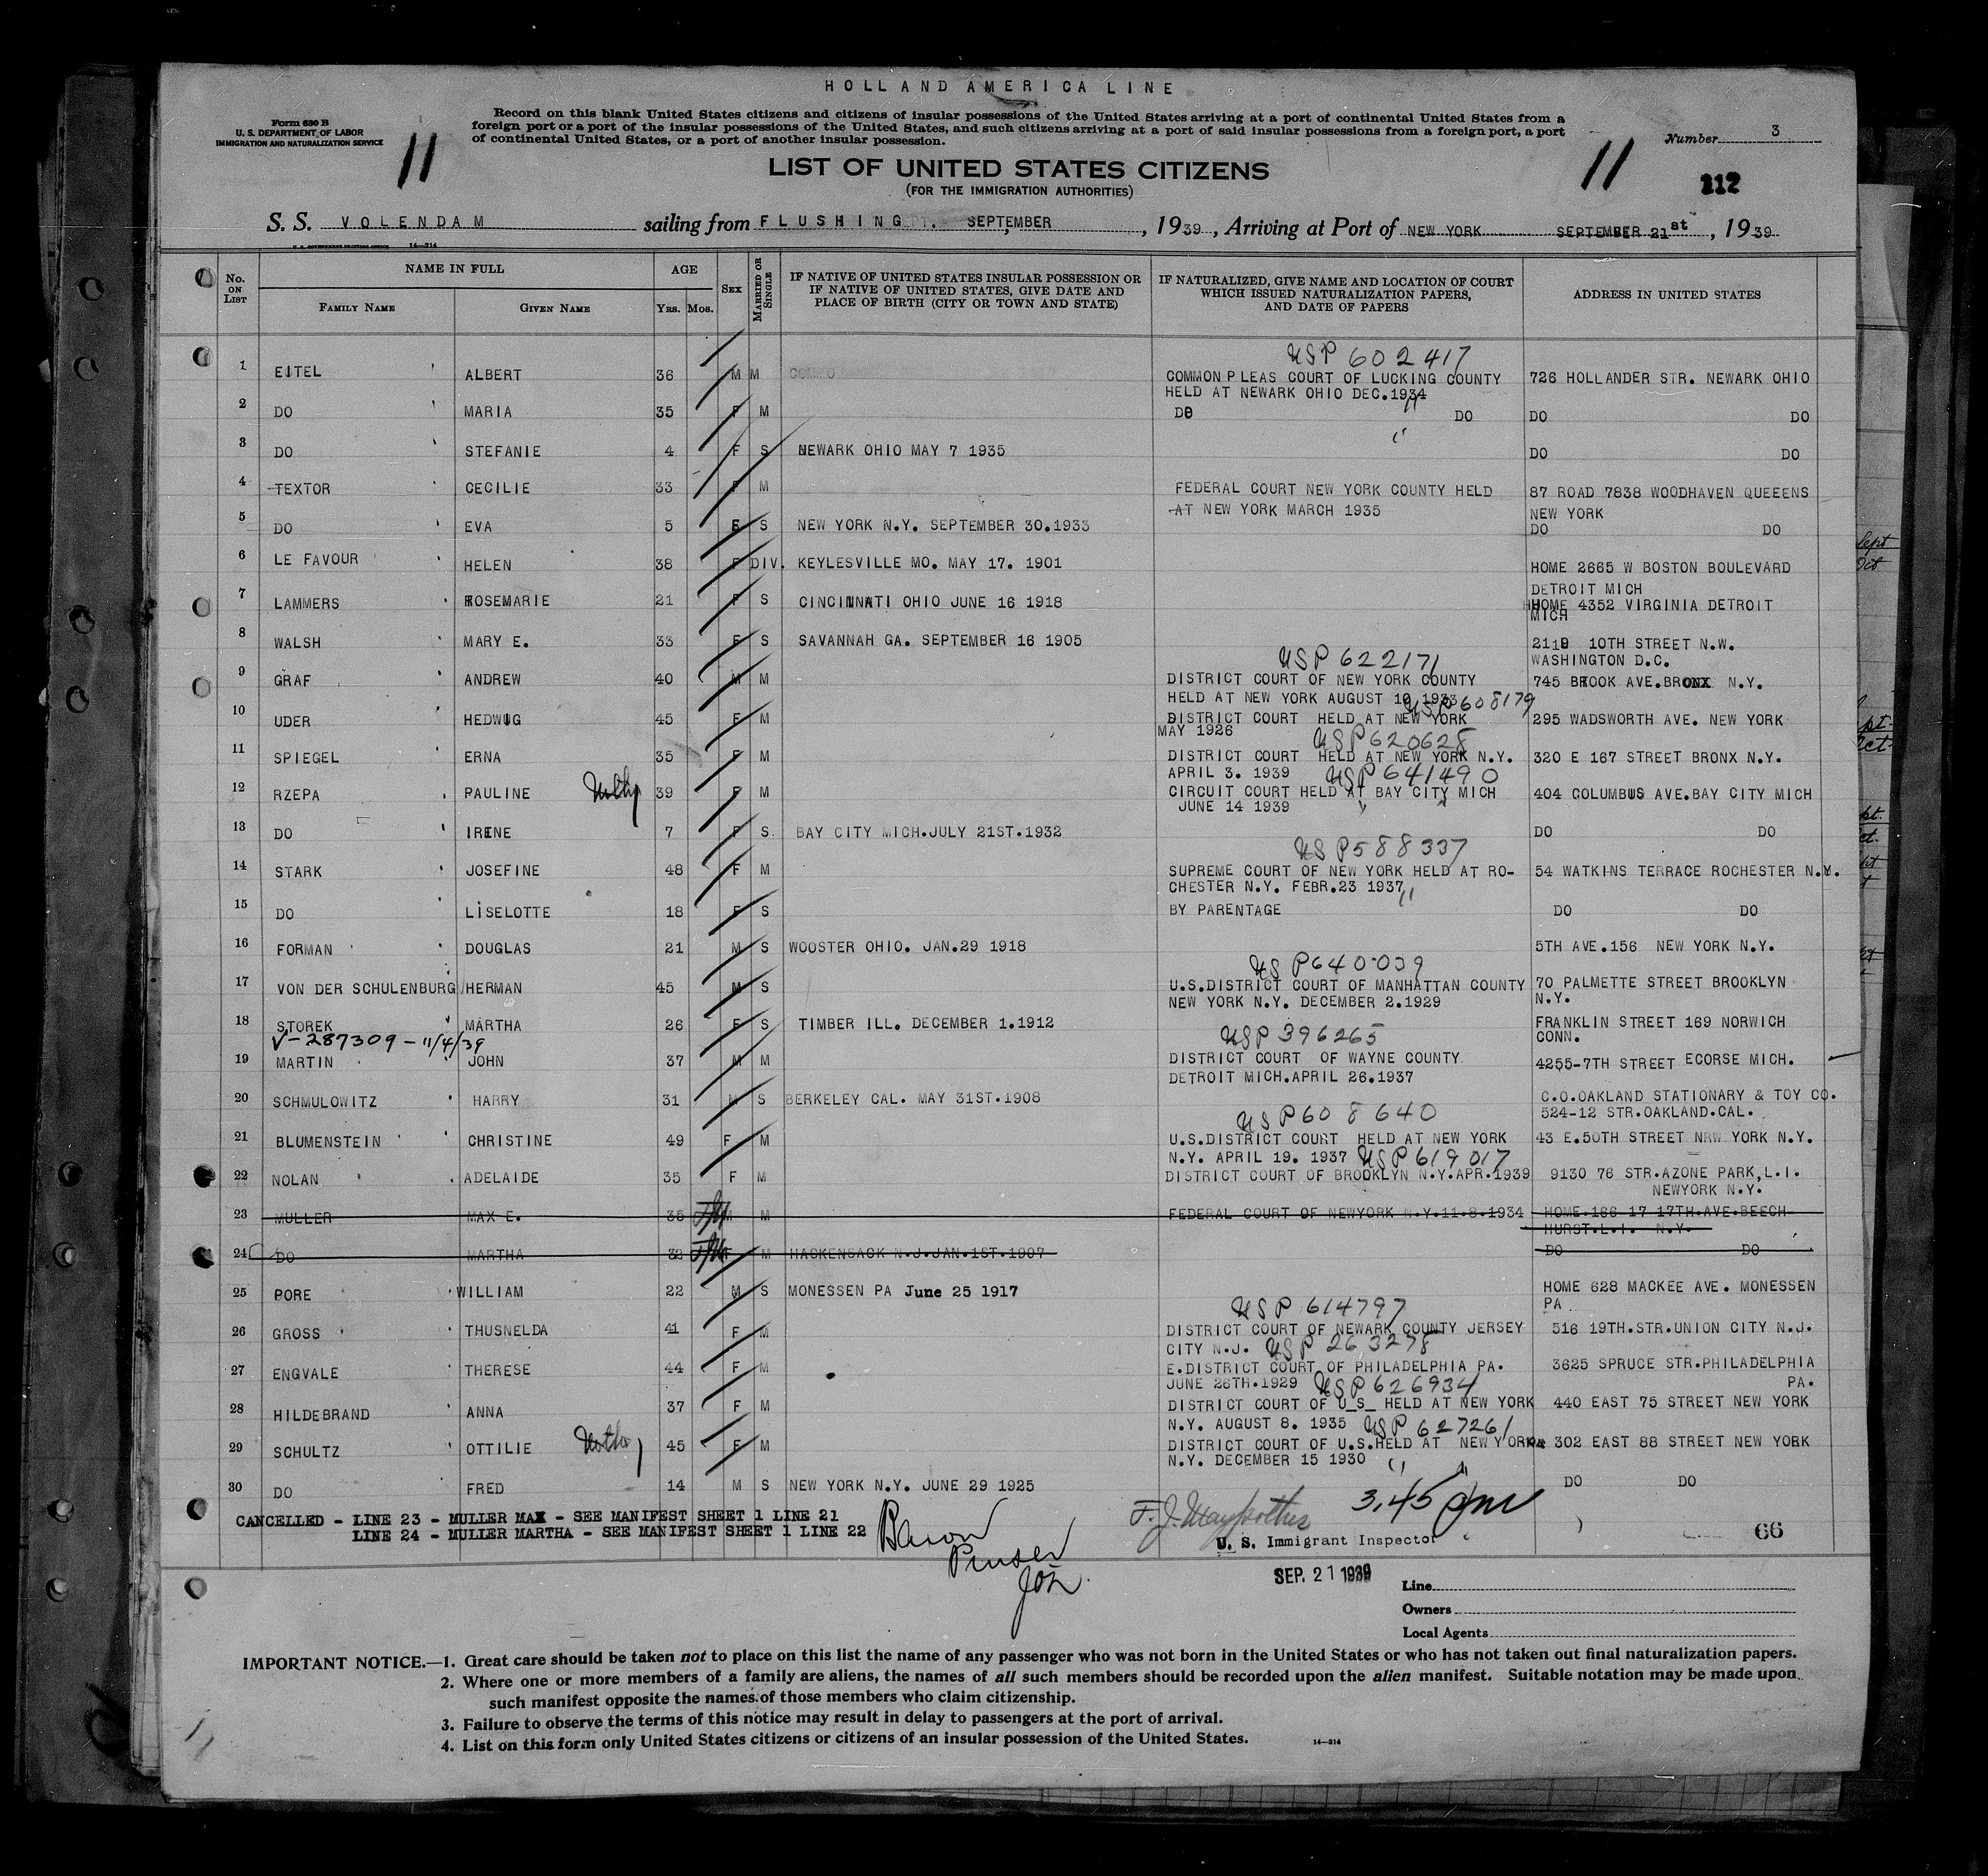 HOLLAND AMERICA LINE
Form 630 B
U. S. DEPARTMENT OF LABOR
IMMIGRATION AND NATURALIZATION SERVICE
Record on this blank United States citizens and citizens of insular possessions of the United States arriving at a port of continental United States from a
foreign port or a port of the insular possessions of the United States, and such citizens arriving at a port of said insular possessions from a foreign port, a port
of continental United States, or a port of another insular possession.
Number 3
11
11
112
LIST OF UNITED STATES CITIZENS
(FOR THE IMMIGRATION AUTHORITIES)
S. S. VOLENDAM sailing from FLUSHING SEPTEMBER, 1939, Arriving at Port of NEW YORK SEPTEMBER 21st, 1939
14—214
No. ON LIST NAME IN FULL AGE SEX MARRIED OR SINGLE IF NATIVE OF UNITED STATES INSULAR POSSESSION OR IF NATIVE OF UNITED STATES, GIVE DATE AND PLACE OF BIRTH (CITY OR TOWN AND STATE) IF NATURALIZED, GIVE NAME AND LOCATION OF COURT WHICH ISSUED NATURALIZATION PAPERS, AND DATE OF PAPERS ADDRESS IN UNITED STATES
FAMILY NAME GIVEN NAME Yrs. Mos.
USP 602417
1 EITEL ALBERT 36 M M COMMON PLEAS COURT OF LUCKING COUNTY 726 HOLLANDER STR. NEWARK OHIO
HELD AT NEWARK OHIO DEC.1934
2 DO MARIA 35 F M DO DO DO DO
3 DO STEFANIE 4 F S NEWARK OHIO MAY 7 1935 DO DO
4 TEXTOR CECILIE 33 F M FEDERAL COURT NEW YORK COUNTY HELD 87 ROAD 7838 WOODHAVEN QUEEENS
AT NEW YORK MARCH 1935 NEW YORK
5 DO EVA 5 F S NEW YORK N.Y. SEPTEMBER 30.1933 DO DO
6 LE FAVOUR HELEN 38 F DIV. KEYLESVILLE MO. MAY 17. 1901 HOME 2665 W BOSTON BOULEVARD
DETROIT MICH
7 LAMMERS ROSEMARIE 21 F S CINCINNATI OHIO JUNE 16 1918 HOME 4352 VIRGINIA DETROIT
MICH
8 WALSH MARY E. 33 F S SAVANNAH GA. SEPTEMBER 16 1905 2119 10TH STREET N.W.
WASHINGTON D.C.
USP 622171
9 GRAF ANDREW 40 M M DISTRICT COURT OF NEW YORK COUNTY 745 BROOK AVE.BRONX N.Y.
HELD AT NEW YORK AUGUST 10 1933 USP 608179
10 UDER HEDWUG 45 F M DISTRICT COURT HELD AT NEW YORK 295 WADSWORTH AVE. NEW YORK
MAY 1926 USP 620628
11 SPIEGEL ERNA 35 F M DISTRICT COURT HELD AT NEW YORK N.Y. 320 E 167 STREET BRONX N.Y.
APRIL 3. 1939 USP 641490
12 RZEPA PAULINE 39 F M CIRCUIT COURT HELD AT BAY CITY MICH 404 COLUMBUS AVE.BAY CITY MICH
JUNE 14 1939
13 DO IRENE 7 F S. BAY CITY MICH.JULY 21ST.1932 DO DO
USP588337
14 STARK JOSEFINE 48 F M SUPREME COURT OF NEW YORK HELD AT RO- 54 WATKINS TERRACE ROCHESTER N.Y.
CHESTER N.Y. FEBR.23 1937
15 DO LISELOTTE 18 F S BY PARENTAGE DO DO
16 FORMAN DOUGLAS 21 M S WOOSTER OHIO. JAN.29 1918 5TH AVE.156 NEW YORK N.Y.
USP640039
17 VON DER SCHULENBURG HERMAN 45 M S U.S.DISTRICT COURT OF MANHATTAN COUNTY 70 PALMETTE STREET BROOKLYN
NEW YORK N.Y. DECEMBER 2.1929 N.Y.
18 STOREK MARTHA 26 F S TIMBER ILL. DECEMBER 1.1912 FRANKLIN STREET 169 NORWICH
V-287309-11/4/39 USP 396265 CONN.
19 MARTIN JOHN 37 M M DISTRICT COURT OF WAYNE COUNTY 4255-7TH STREET ECORSE MICH.
DETROIT MICH.APRIL 26.1937
20 SCHMULOWITZ HARRY 31 M S BERKELEY CAL. MAY 31ST.1908 C.O.OAKLAND STATIONARY & TOY CO.
USP608640 524-12 STR.OAKLAND.CAL.
21 BLUMENSTEIN CHRISTINE 49 F M U.S.DISTRICT COURT HELD AT NEW YORK 43 E.50TH STREET NRW YORK N.Y.
N.Y. APRIL 19. 1937 USP 619017
22 NOLAN ADELAIDE 35 F M DISTRICT COURT OF BROOKLYN N.Y.APR.1939 9130 76 STR.AZONE PARK,L.I.
NEWYORK N.Y.
23 MULLER MAX E. 35 M M FEDERAL COURT OF NEWYORK N.Y.11.8.1934 HOME.166 17 17TH.AVE.BEECH-
HURST.L.I. N.Y.
24 DO MARTHA 32 F M HACKENSACK N.J.JAN.1ST.1907 DO DO
25 PORE WILLIAM 22 M S MONESSEN PA June 25 1917 HOME 628 MACKEE AVE. MONESSEN
USP 614797 PA
26 GROSS THUSNELDA 41 F M DISTRICT COURT OF NEWARK COUNTY JERSEY 516 19TH.STR.UNION CITY N.J.
CITY N.J. USP 263278
27 ENGVALE THERESE 44 F M E.DISTRICT COURT OF PHILADELPHIA PA. 3625 SPRUCE STR.PHILADELPHIA
JUNE 26TH.1929 USP626934 PA.
28 HILDEBRAND ANNA 37 F M DISTRICT COURT OF U_S_ HELD AT NEW YORK 440 EAST 75 STREET NEW YORK
N.Y. AUGUST 8. 1935 USP 627261
29 SCHULTZ OTTILIE 45 F M DISTRICT COURT OF U.S.HELD AT NEW YORK 302 EAST 88 STREET NEW YORK
N.Y. DECEMBER 15 1930
30 DO FRED 14 M S NEW YORK N.Y. JUNE 29 1925 DO DO
CANCELLED - LINE 23 - MULLER MAX - SEE MANIFEST SHEET 1 LINE 21
LINE 24 - MULLER MARTHA - SEE MANIFEST SHEET 1 LINE 22
3.45 pm
U. S. Immigrant Inspector
66
SEP. 21 1939
Line
Owners
Local Agents
IMPORTANT NOTICE.—1. Great care should be taken not to place on this list the name of any passenger who was not born in the United States or who has not taken out final naturalization papers.
2. Where one or more members of a family are aliens, the names of all such members should be recorded upon the alien manifest. Suitable notation may be made upon
such manifest opposite the names of those members who claim citizenship.
3. Failure to observe the terms of this notice may result in delay to passengers at the port of arrival.
4. List on this form only United States citizens or citizens of an insular possession of the United States.
14—214